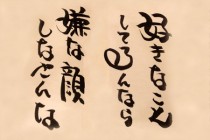 好きなこと
してるんなら
嫌な顔
しなさんな